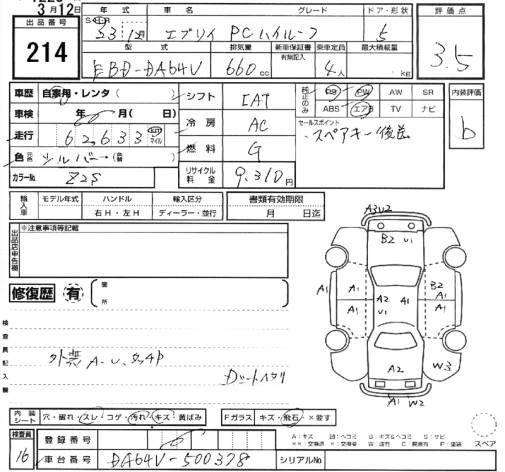 3月12日
出品番号
214
年式 車名 グレード ドア・形状
S H
33 1/2月 エブリイ PCハイルーフ 5
型式 排気量 新車保証書 乗車定員 最大積載量
有無記入
EBD-DA64V 660cc 4人 kg
評価点
3.5
車歴 自家用・レンタ( )
車検 年 月( 日)
走行 62,633 km マイル
色 元色 シルバー (替 )
カラーNo. Z2S
シフト IAT
冷房 AC
燃料 G
リサイクル料金 9,310円
純正のみ PS PW AW SR
ABS エアB TV ナビ
セールスポイント
スペアキー後送
内装評価
b
輸入車 モデル年式 ハンドル 輸入区分
右H・左H ディーラー・並行
書類有効期限
月 日迄
出品店申告欄
※注意事項等記載
修復歴 有
箇所
検査員記入欄
外装 A-U
A3U2
B2 U1
A1 A1 A1 A2 A1 B2 A1 A1
U1
A1 W3
A2
A1 W2
内装シート 穴・破れ・スレ・コゲ・汚れ・キズ・黄ばみ
Fガラス キズ・飛石・×要す
スペア
検査員 16
登録番号
車台番号 DA64V-500378
シリアルNo.